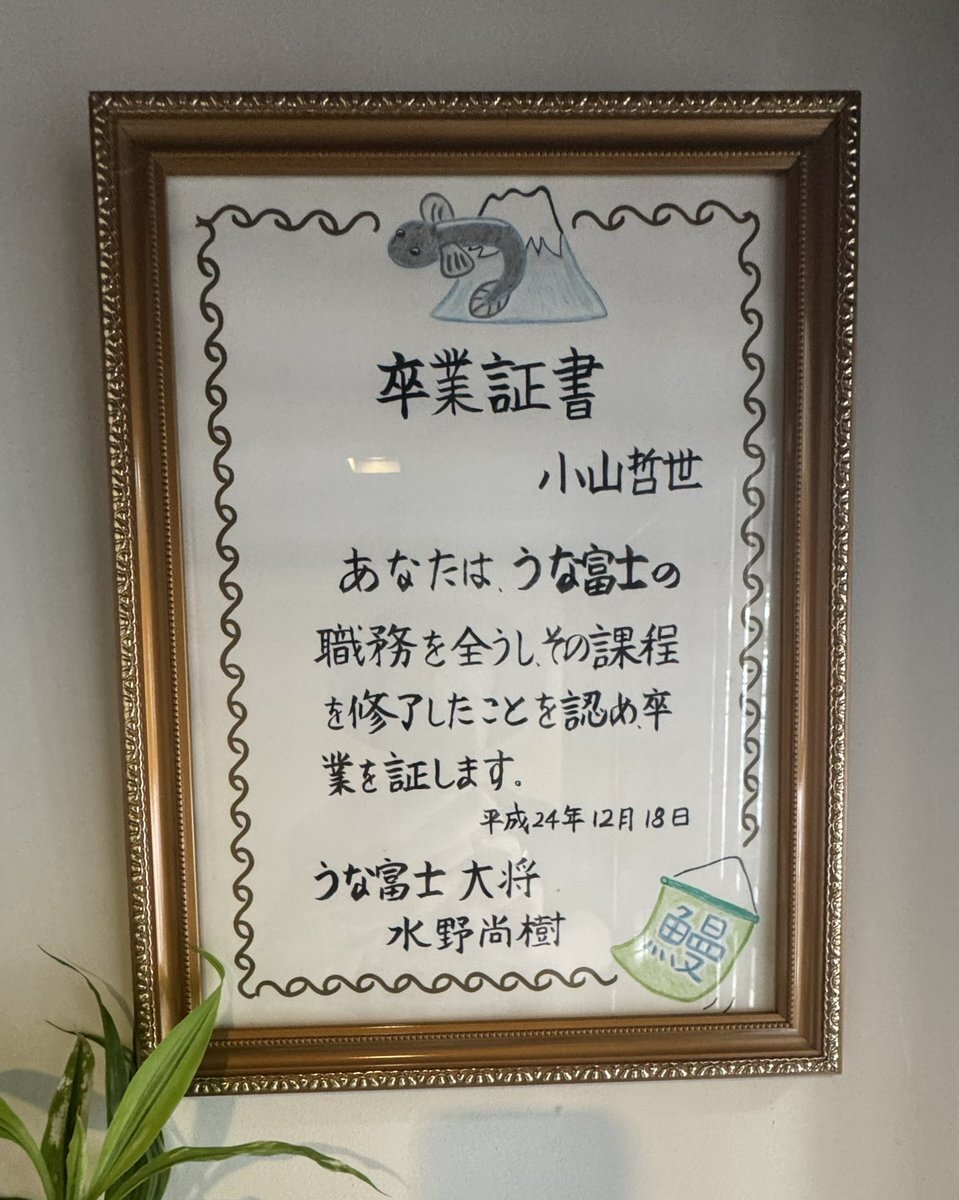 卒業証書
小山哲世
あなたは、うな富士の
職務を全うし、その課程
を修了したことを認め、卒
業を証します。
平成24年12月18日
うな富士 大将
水野尚樹
鰻